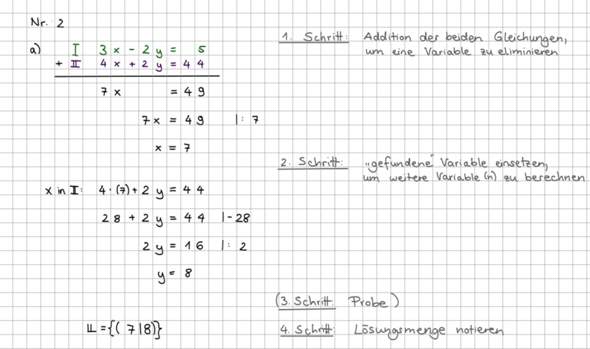 Nr. 2
a) I 3x - 2y = 5
+ II 4x + 2y = 44
7x = 49
7x = 49 |:7
x = 7
x in I: 4·(7)+2y = 44
28 + 2y = 44 |-28
2y = 16 |:2
y = 8
𝕃 = {(7|8)}
1. Schritt: Addition der beiden Gleichungen,
um eine Variable zu eliminieren
2. Schritt: "gefundene" Variable einsetzen,
um weitere Variable(n) zu berechnen
(3. Schritt: Probe)
4. Schritt: Lösungsmenge notieren